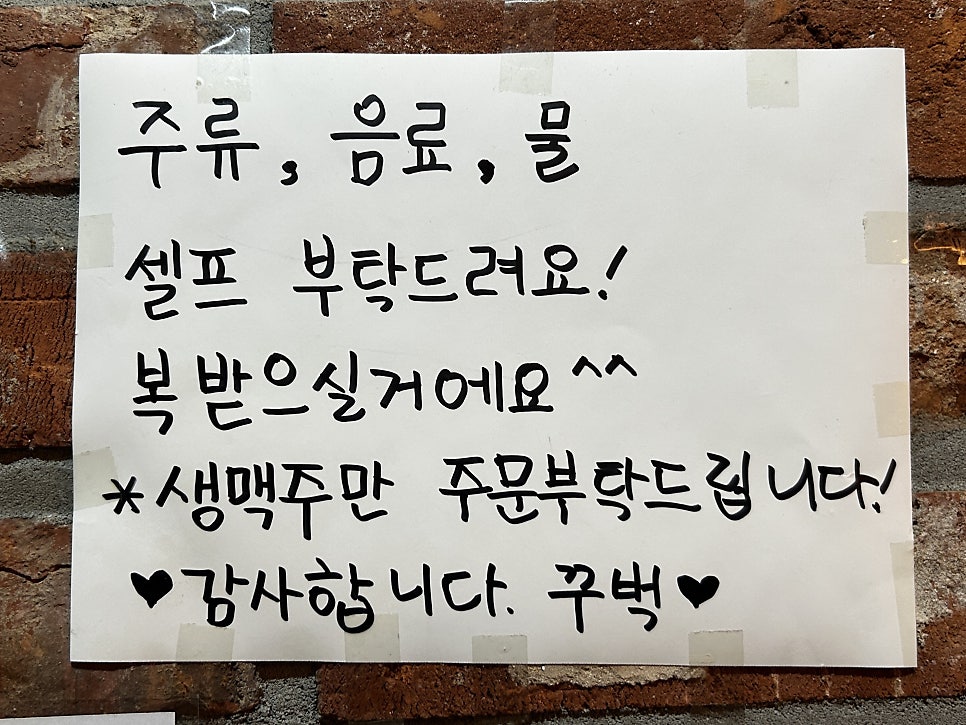 주류, 음료, 물
셀프 부탁드려요!
복 받으실거에요^^
*생맥주만 주문부탁드립니다!
♥감사합니다. 꾸벅♥